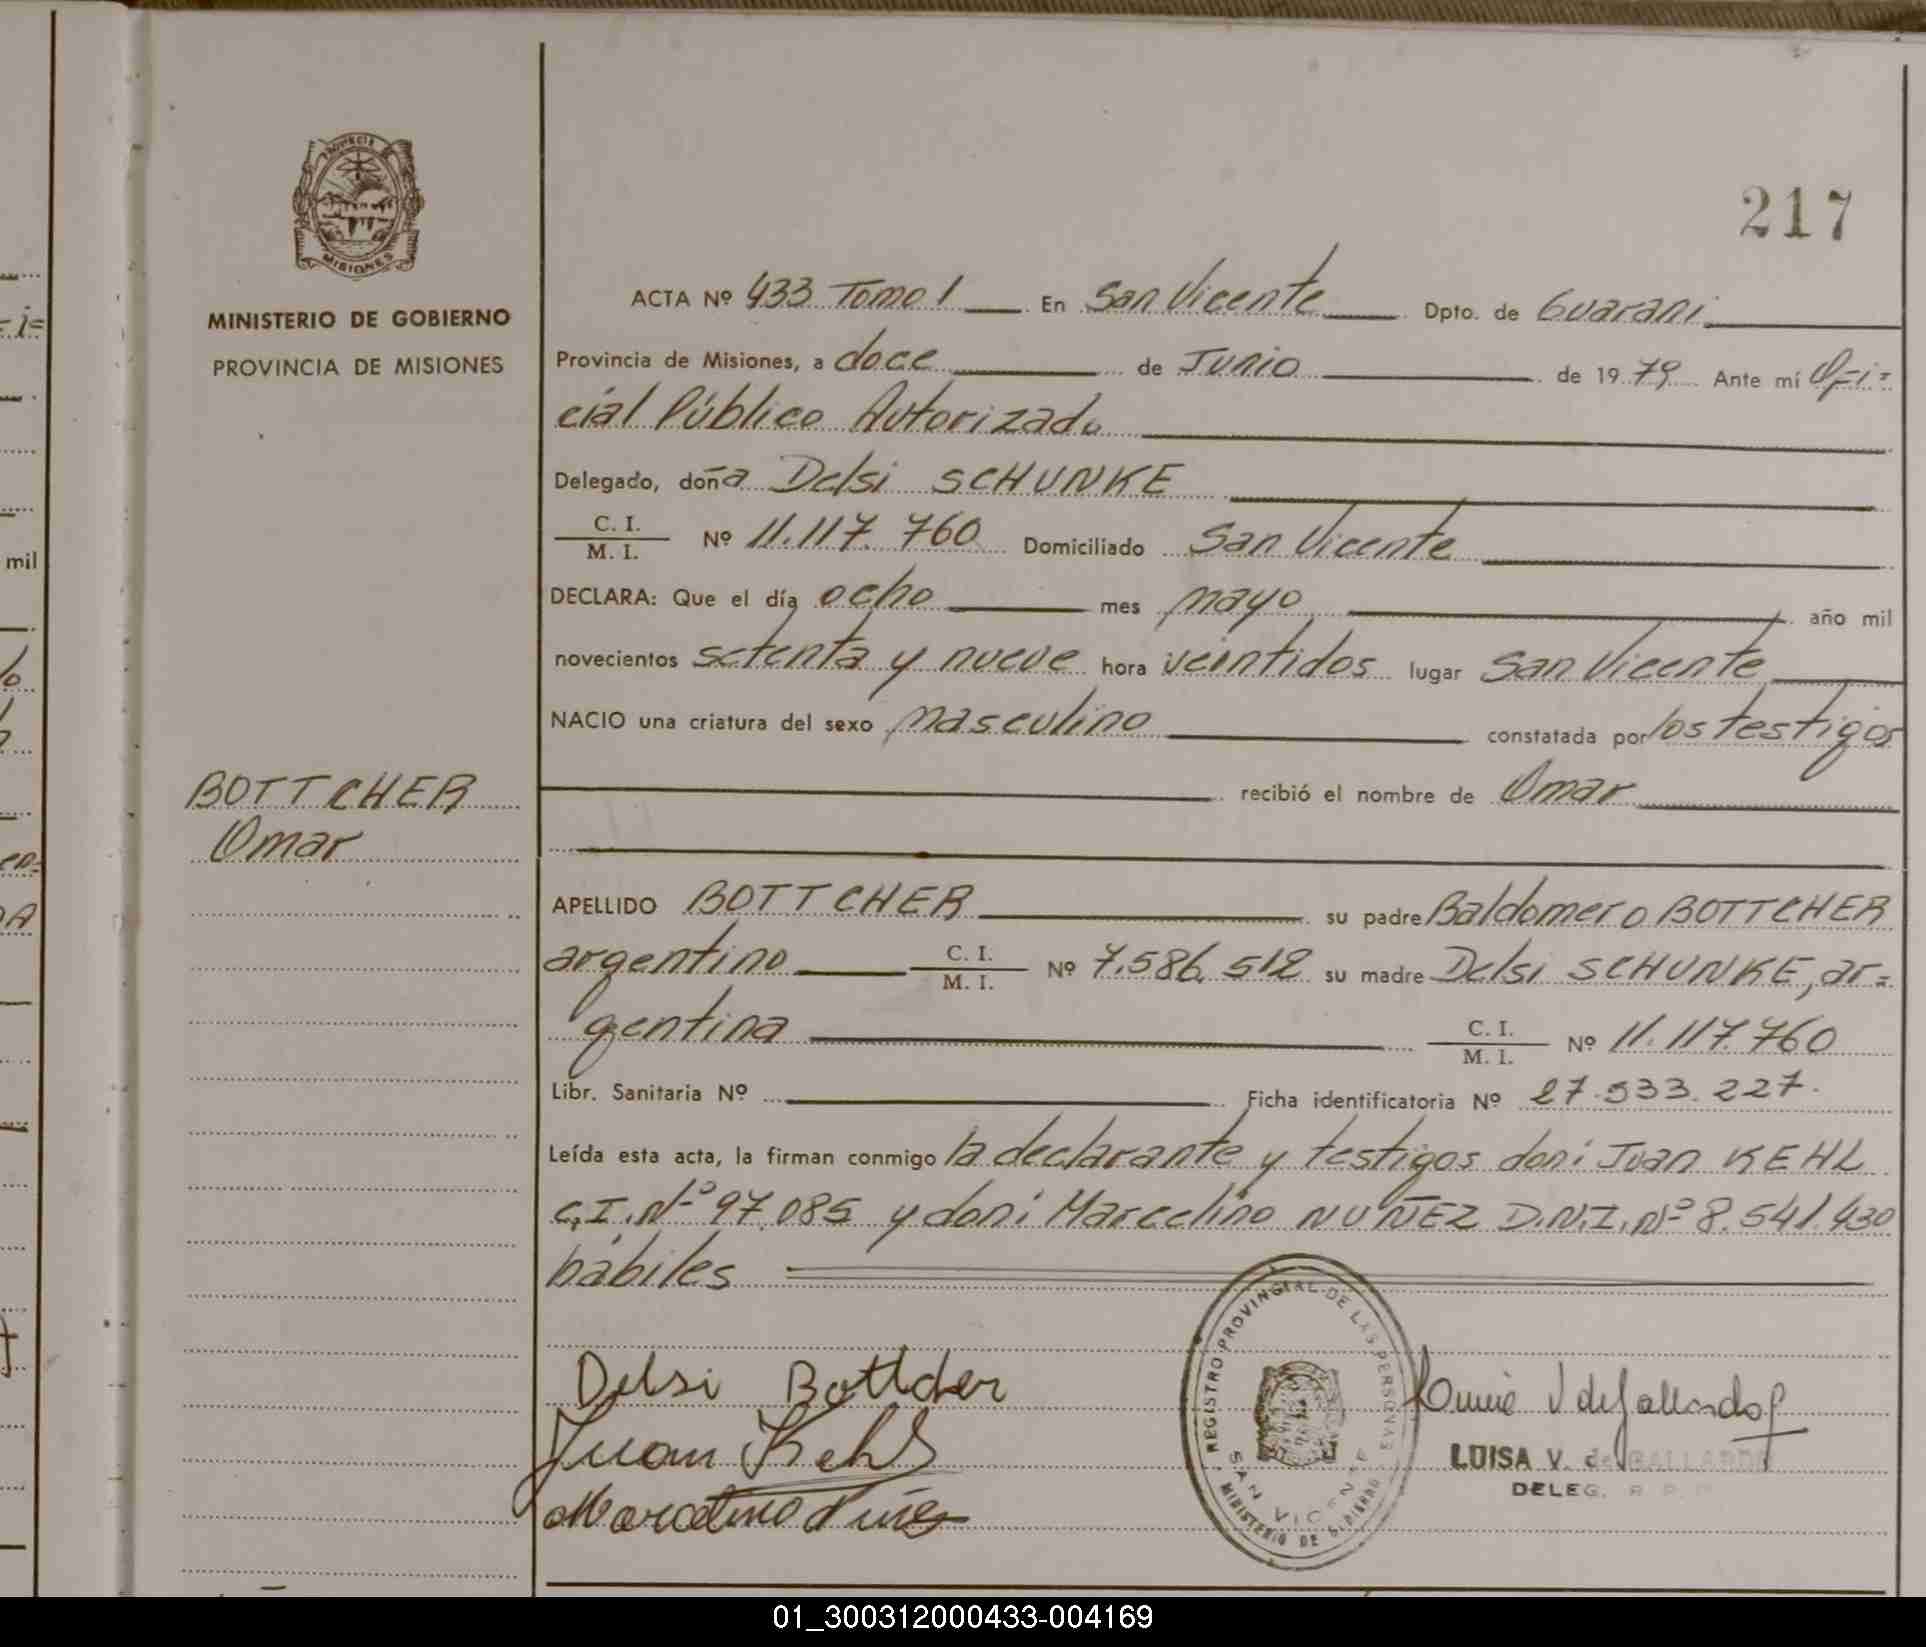 217
PROVINCIA DE
MISIONES
MINISTERIO DE GOBIERNO
PROVINCIA DE MISIONES
BOTTCHER
Omar
ACTA Nº 433 Tomo I En San Vicente Dpto. de Guarani
Provincia de Misiones, a doce de Junio de 19 79 Ante mí Ofi=
cial Público Autorizado
Delegado, doña Delsi SCHUNKE
C. I.
M. I. Nº 11.117.760 Domiciliado San Vicente
DECLARA: Que el día ocho mes mayo año mil
novecientos setenta y nueve hora veintidos lugar San Vicente
NACIO una criatura del sexo masculino constatada por los testigos
recibió el nombre de Omar
APELLIDO BOTTCHER su padre Baldomero BOTTCHER
argentino C. I.
M. I. Nº 7.586.512 su madre Delsi SCHUNKE, ar=
gentina C. I.
M. I. Nº 11.117.760
Libr. Sanitaria Nº Ficha identificatoria Nº 27.533.227.
Leída esta acta, la firman conmigo la declarante y testigos don: Juan KEHL
C.I. Nº 97.085 y don: Marcelino NUÑEZ D.N.I. Nº 8.541.430
hábiles
Delsi Bottcher
Juan Kehl
Marcelino Nuñez
REGISTRO PROVINCIAL DE LAS PERSONAS
SAN VICENTE
MINISTERIO DE GOBIERNO
LUISA V. de GALLARDO
DELEG. R. P.
mil
01_300312000433-004169